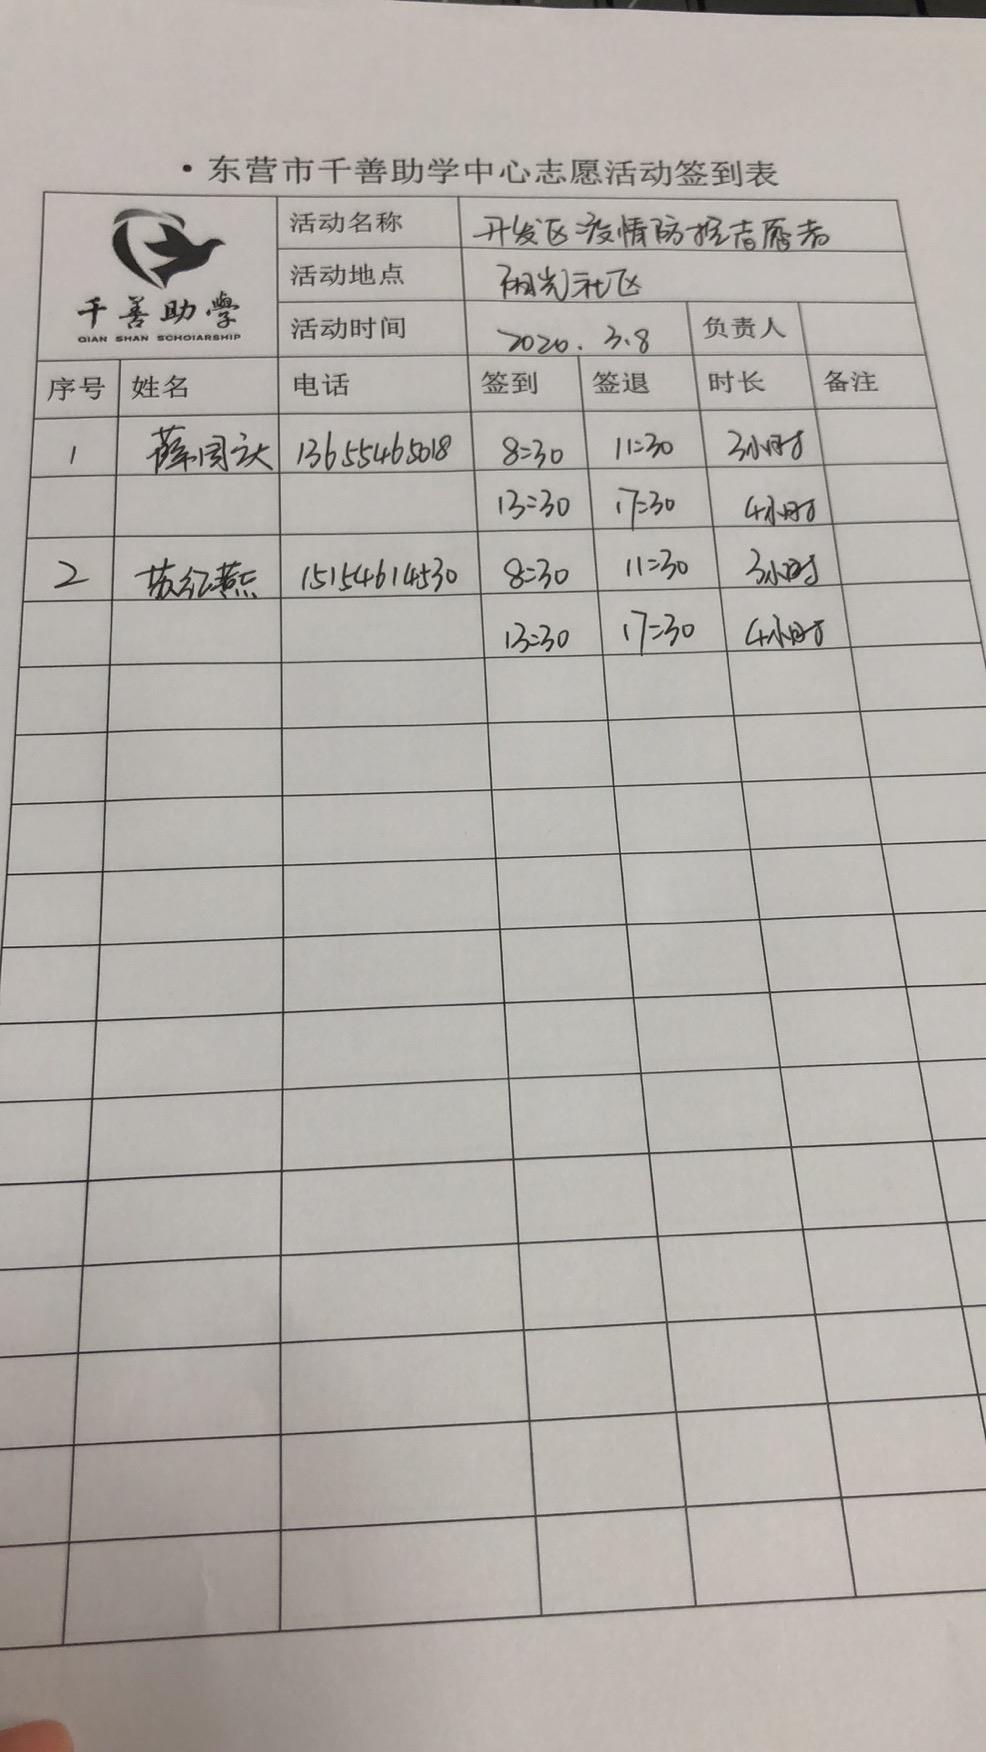 ·东营市千善助学中心志愿活动签到表
千善助學
QIAN SHAN SCHOIARSHIP
活动名称 开发区疫情防控志愿者
活动地点 阳光社区
活动时间 2020.3.8 负责人
序号 姓名 电话 签到 签退 时长 备注
1 薛国庆 13655465018 8:30 11:30 3小时
13:30 17:30 4小时
2 苏红燕 15154614530 8:30 11:30 3小时
13:30 17:30 4小时